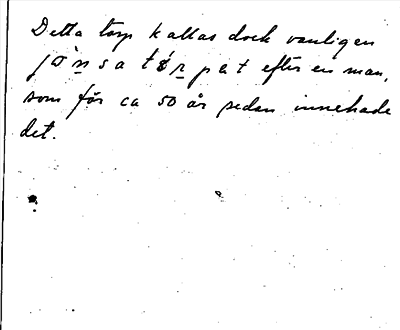 Detta torp kallas dock vanligen
jònsatórpet efter en man,
som för ca 50 år sedan innehade
det.